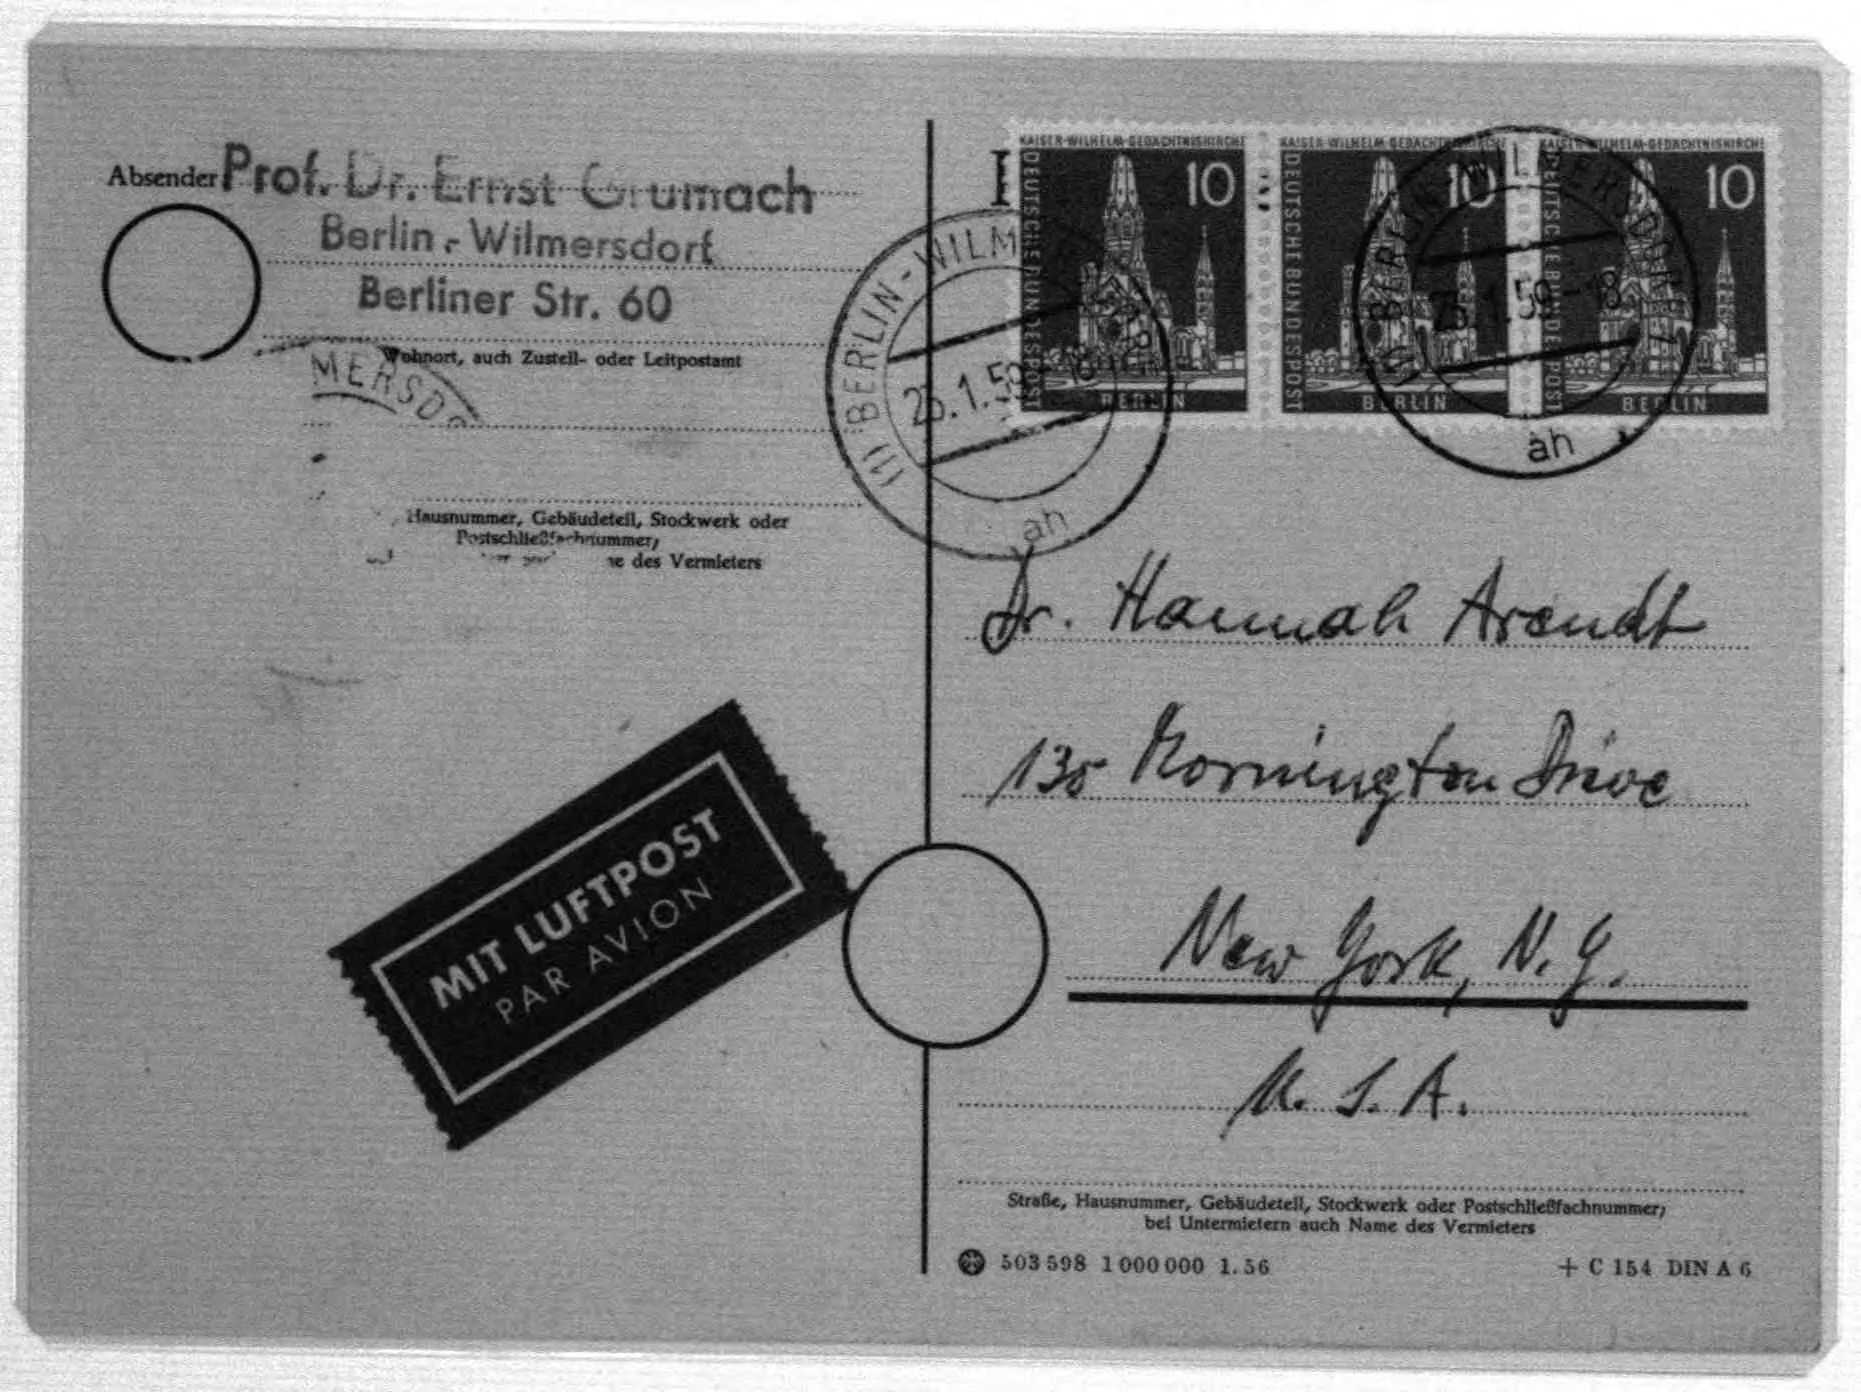 Absender Prof. Dr. Ernst Grumach
Berlin-Wilmersdorf
Berliner Str. 60
Wohnort, auch Zustell- oder Leitpostamt
MERSDO
Hausnummer, Gebäudeteil, Stockwerk oder
Postschließfachnummer,
des Vermieters
MIT LUFTPOST
PAR AVION
KAISER-WILHELM-GEDÄCHTNISKIRCHE
10
DEUTSCHE BUNDESPOST
BERLIN
KAISER-WILHELM-GEDÄCHTNISKIRCHE
10
DEUTSCHE BUNDESPOST
BERLIN
KAISER-WILHELM-GEDÄCHTNISKIRCHE
10
DEUTSCHE BUNDESPOST
BERLIN
(1) BERLIN-WILMERSDORF
1.59-18
ah
(1) BERLIN-WILMERSDORF
1.59-18
ah
Dr. Hannah Arendt
130 Mornington Drive
New York, N.Y.
U.S.A.
Straße, Hausnummer, Gebäudeteil, Stockwerk oder Postschließfachnummer;
bei Untermietern auch Name des Vermieters
503 598 1 000 000 1.56
+ C 154 DIN A 6